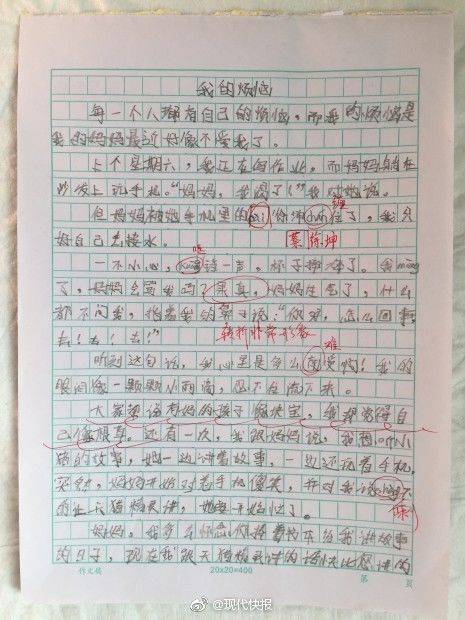 我的烦恼
每一个人都有自己的烦恼，而我的烦恼是
我的妈妈最近好像不爱我了。
上个星期六，我正在写作业，而妈妈躺在
沙发上玩手机。“妈妈，我渴了！”我对她说。
但妈妈被她手机里的 住了，我只
缠
好自己去接水。
蔡徐坤
一不小心， 一声，杯子摔碎了。我
了，妈妈会骂我吗？果真，妈妈生气了，什么
都不问我，指着我的鼻子说：“你呀，怎么回事，
去！去！去！”
转折非常形象
难
听到这句话，我心里是多么 受啊！我的
眼泪像一颗颗小雨滴，忍不住流下来。
大家都说有妈的孩子像块宝，我却觉得自
己像根草。还有一次，我跟妈妈说，我想听小
猪的故事，她一边讲着故事，一边还玩着手机，
突然，妈妈开始对着手机傻笑，并对我说
的让天猫精灵讲，她
陈
妈妈，我多么怀念你捧着书本给我讲故事
的日子，现在我跟天猫精灵讲的话快比您讲的
作文稿
20x20=400
第 页
@现代快报